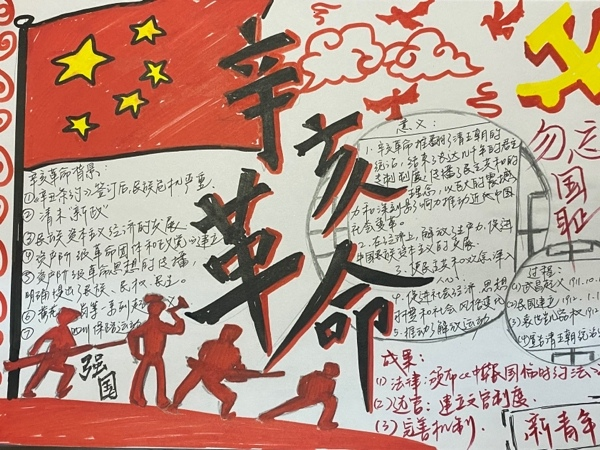 辛亥革命
勿忘国耻
辛亥革命背景：
①《辛丑条约》签订后,民族危机严重.
②清末"新政"
③民族资本主义经济的发展
④资产阶级革命团体和政党的建立
⑤资产阶级革命思想的传播,
明确提出民族、民权、民主.
⑥
⑦ 四川保路运动
强国
意义：
1.辛亥革命推翻了清王朝的
统治，结束了长达几千年的君主
专制制度,传播了民主共和的
理念，以巨大的震撼
力和深刻影响力推动近代中国
社会变革。
2.在经济上，解放生产力，促进
中国民族资本主义的发展.
3.使民主共和观念深入
人心.
4.促进社会经济、思想
习惯和社会风俗
5.推动了解放运动
过程：
(1)武昌起义 1911.10.1
(2)民国建立 1912.1.1
(3)袁世凯
(4)清王朝统治
成果：
(1)法律：颁布《中华民国临时约法》
(2)建立文官制度.
(3)完善机制.
新青年